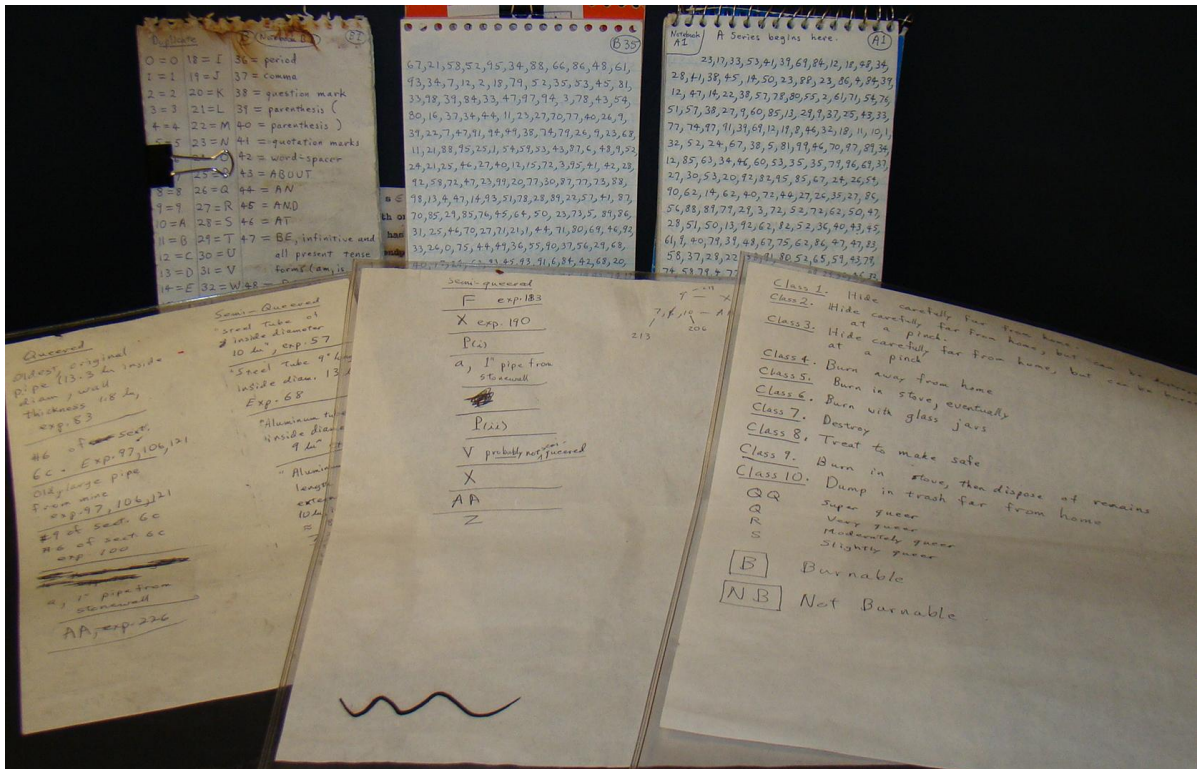 Duplicate
(Notebook
B1
0=0 18=I 36= period
1=1 19=J 37= comma
2=2 20=K 38= question mark
3=3 21=L 39= parenthesis (
4=4 22=M 40= parenthesis )
5=5 23=N 41= quotation marks
42= word-spacer
43= ABOUT
8=8 26=Q 44= AN
9=9 27=R 45= AND
10=A 28=S 46= AT
11=B 29=T 47= BE, infinitive and
12=C 30=U all present tense
13=D 31=V forms (am, is
14=E 32=W 48=
B35
67,21,58,52,95,34,88,66,86,48,61,
93,34,7,12,2,18,79,52,35,53,45,81,
33,98,39,84,33,47,97,94,3,78,43,54,
80,16,37,34,44,11,23,27,70,77,40,26,9,
39,22,7,47,91,94,49,38,74,79,26,9,23,68,
11,21,88,95,25,1,54,59,53,43,87,6,48,9,52
24,21,25,46,27,40,12,15,72,3,95,41,42,28,
92,58,72,47,23,99,20,77,30,87,77,73,88,
98,13,4,47,14,93,51,78,28,89,22,57,41,87,
70,85,29,85,76,45,64,50,23,73,5,89,86,
31,25,46,70,27,71,21,1,44,71,80,69,46,92
33,26,0,75,44,49,36,55,90,37,56,29,68,
Notebook A1
A Series begins here.
A1
23,17,33,53,41,39,69,84,12,18,48,34,
28,41,38,45,14,50,23,88,23,86,4,84,39
12,47,14,22,38,57,78,80,55,2,61,71,54,76
51,57,38,27,9,60,85,13,29,9,37,25,43,33
77,74,97,91,39,69,12,19,8,46,32,18,11,10,1
32,52,24,67,38,5,81,99,46,70,97,89,34
12,85,63,34,46,60,53,35,35,79,96,69,37
27,30,53,20,92,82,95,85,67,24,26,54
90,62,14,62,40,72,44,27,26,35,27,86
56,88,89,79,29,3,72,52,72,62,50,47
28,51,50,13,92,62,82,52,36,40,43,45
61,9,40,79,39,48,67,75,62,86,47,47,33
Queered
oldest, original
pipe (13.3 ln inside
diam, wall
thickness 1.8 ln,
exp. 83
#6 of sect.
6c. Exp. 97,106,121
Old large pipe
from mine
exp. 97, 106, 121
#9 of sect. 6c
#6 of sect. 6c
exp. 100
a, 1" pipe from
stonewall
AA, exp. 226
Semi-Queered
"Steel Tube of
inside diameter
10 ln", exp. 57
"Steel tube 9"
inside diam. 13
Exp. 68
"Aluminum tube
inside
9 ln"
"Aluminum
length
Semi-queered
F exp. 183
X exp. 190
P(i)
a, 1" pipe from
stonewall
P(ii)
V probably not semi-queered
X
AA
Z
7, 8, 10
213
206
Class 1. Hide carefully far from home.
Class 2. Hide carefully far from home, but can be
at a pinch.
Class 3. Hide carefully far from home, but can be
at a pinch
Class 4. Burn away from home
Class 5. Burn in stove, eventually
Class 6. Burn with glass jars
Class 7. Destroy
Class 8. Treat to make safe
Class 9. Burn in stove, then dispose of remains
Class 10. Dump in trash far from home
QQ Super queer
Q Very queer
R Moderately queer
S Slightly queer
B Burnable
NB Not Burnable